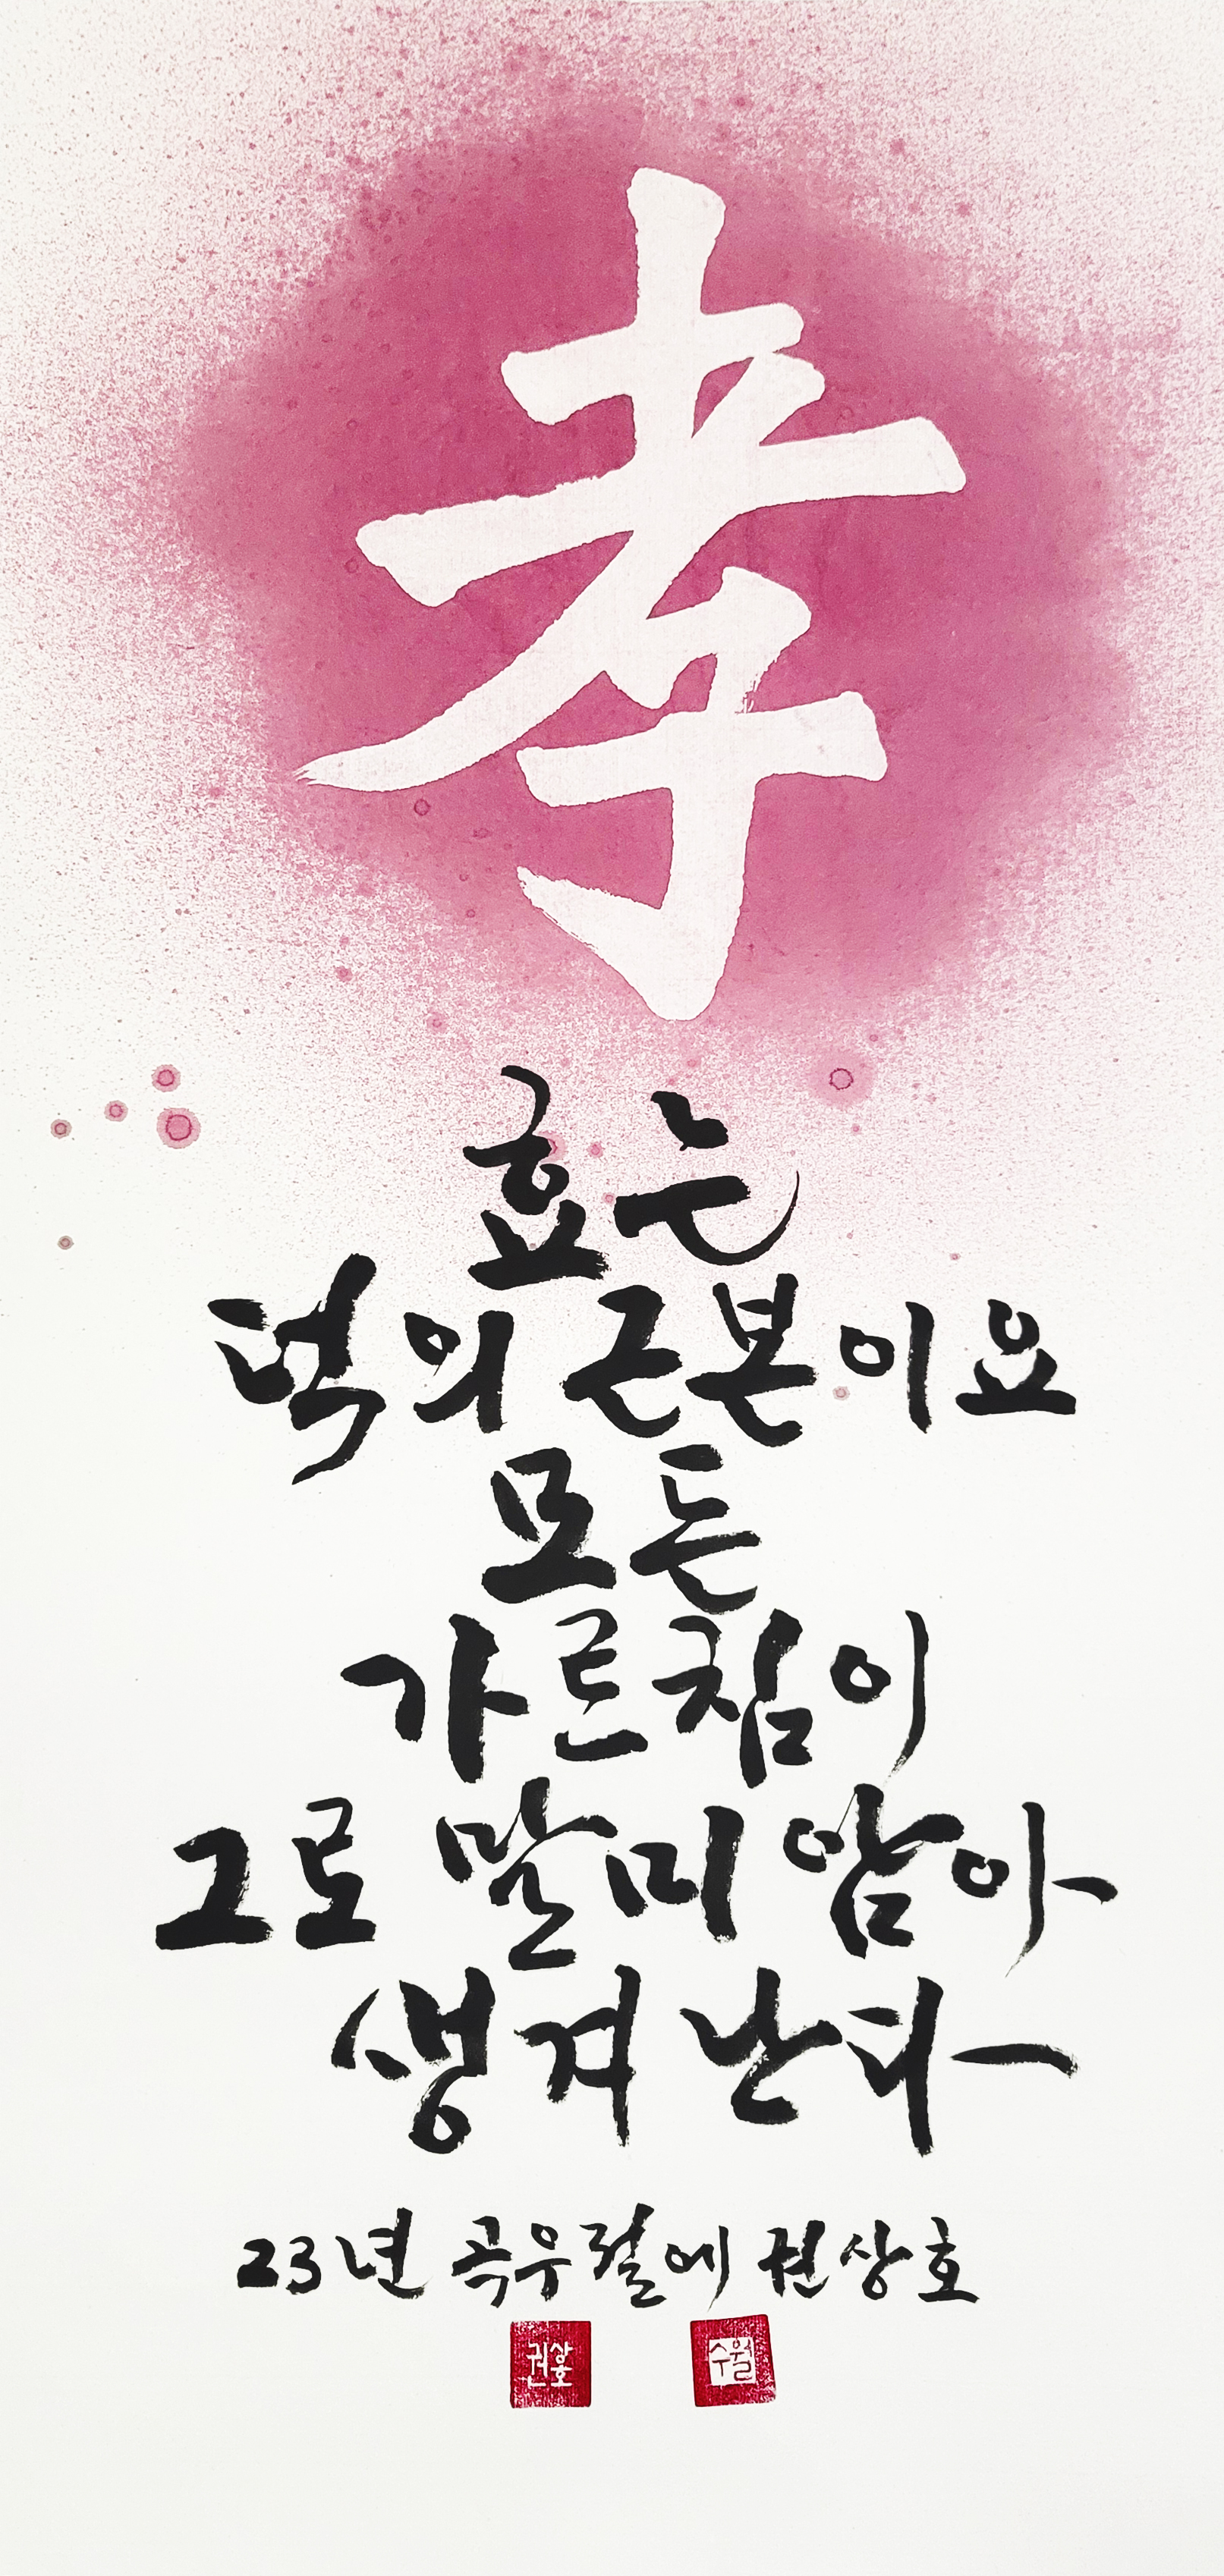 孝
효는
덕의 근본이요
모든
가르침이
그로 말미암아
생겨난다
23년 곡우절에 권상호
권상호
수월